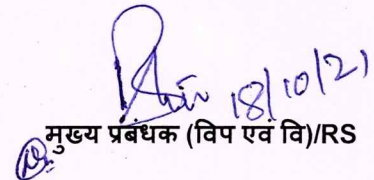 18/10/21
मुख्य प्रबंधक (विप एवं वि)/RS